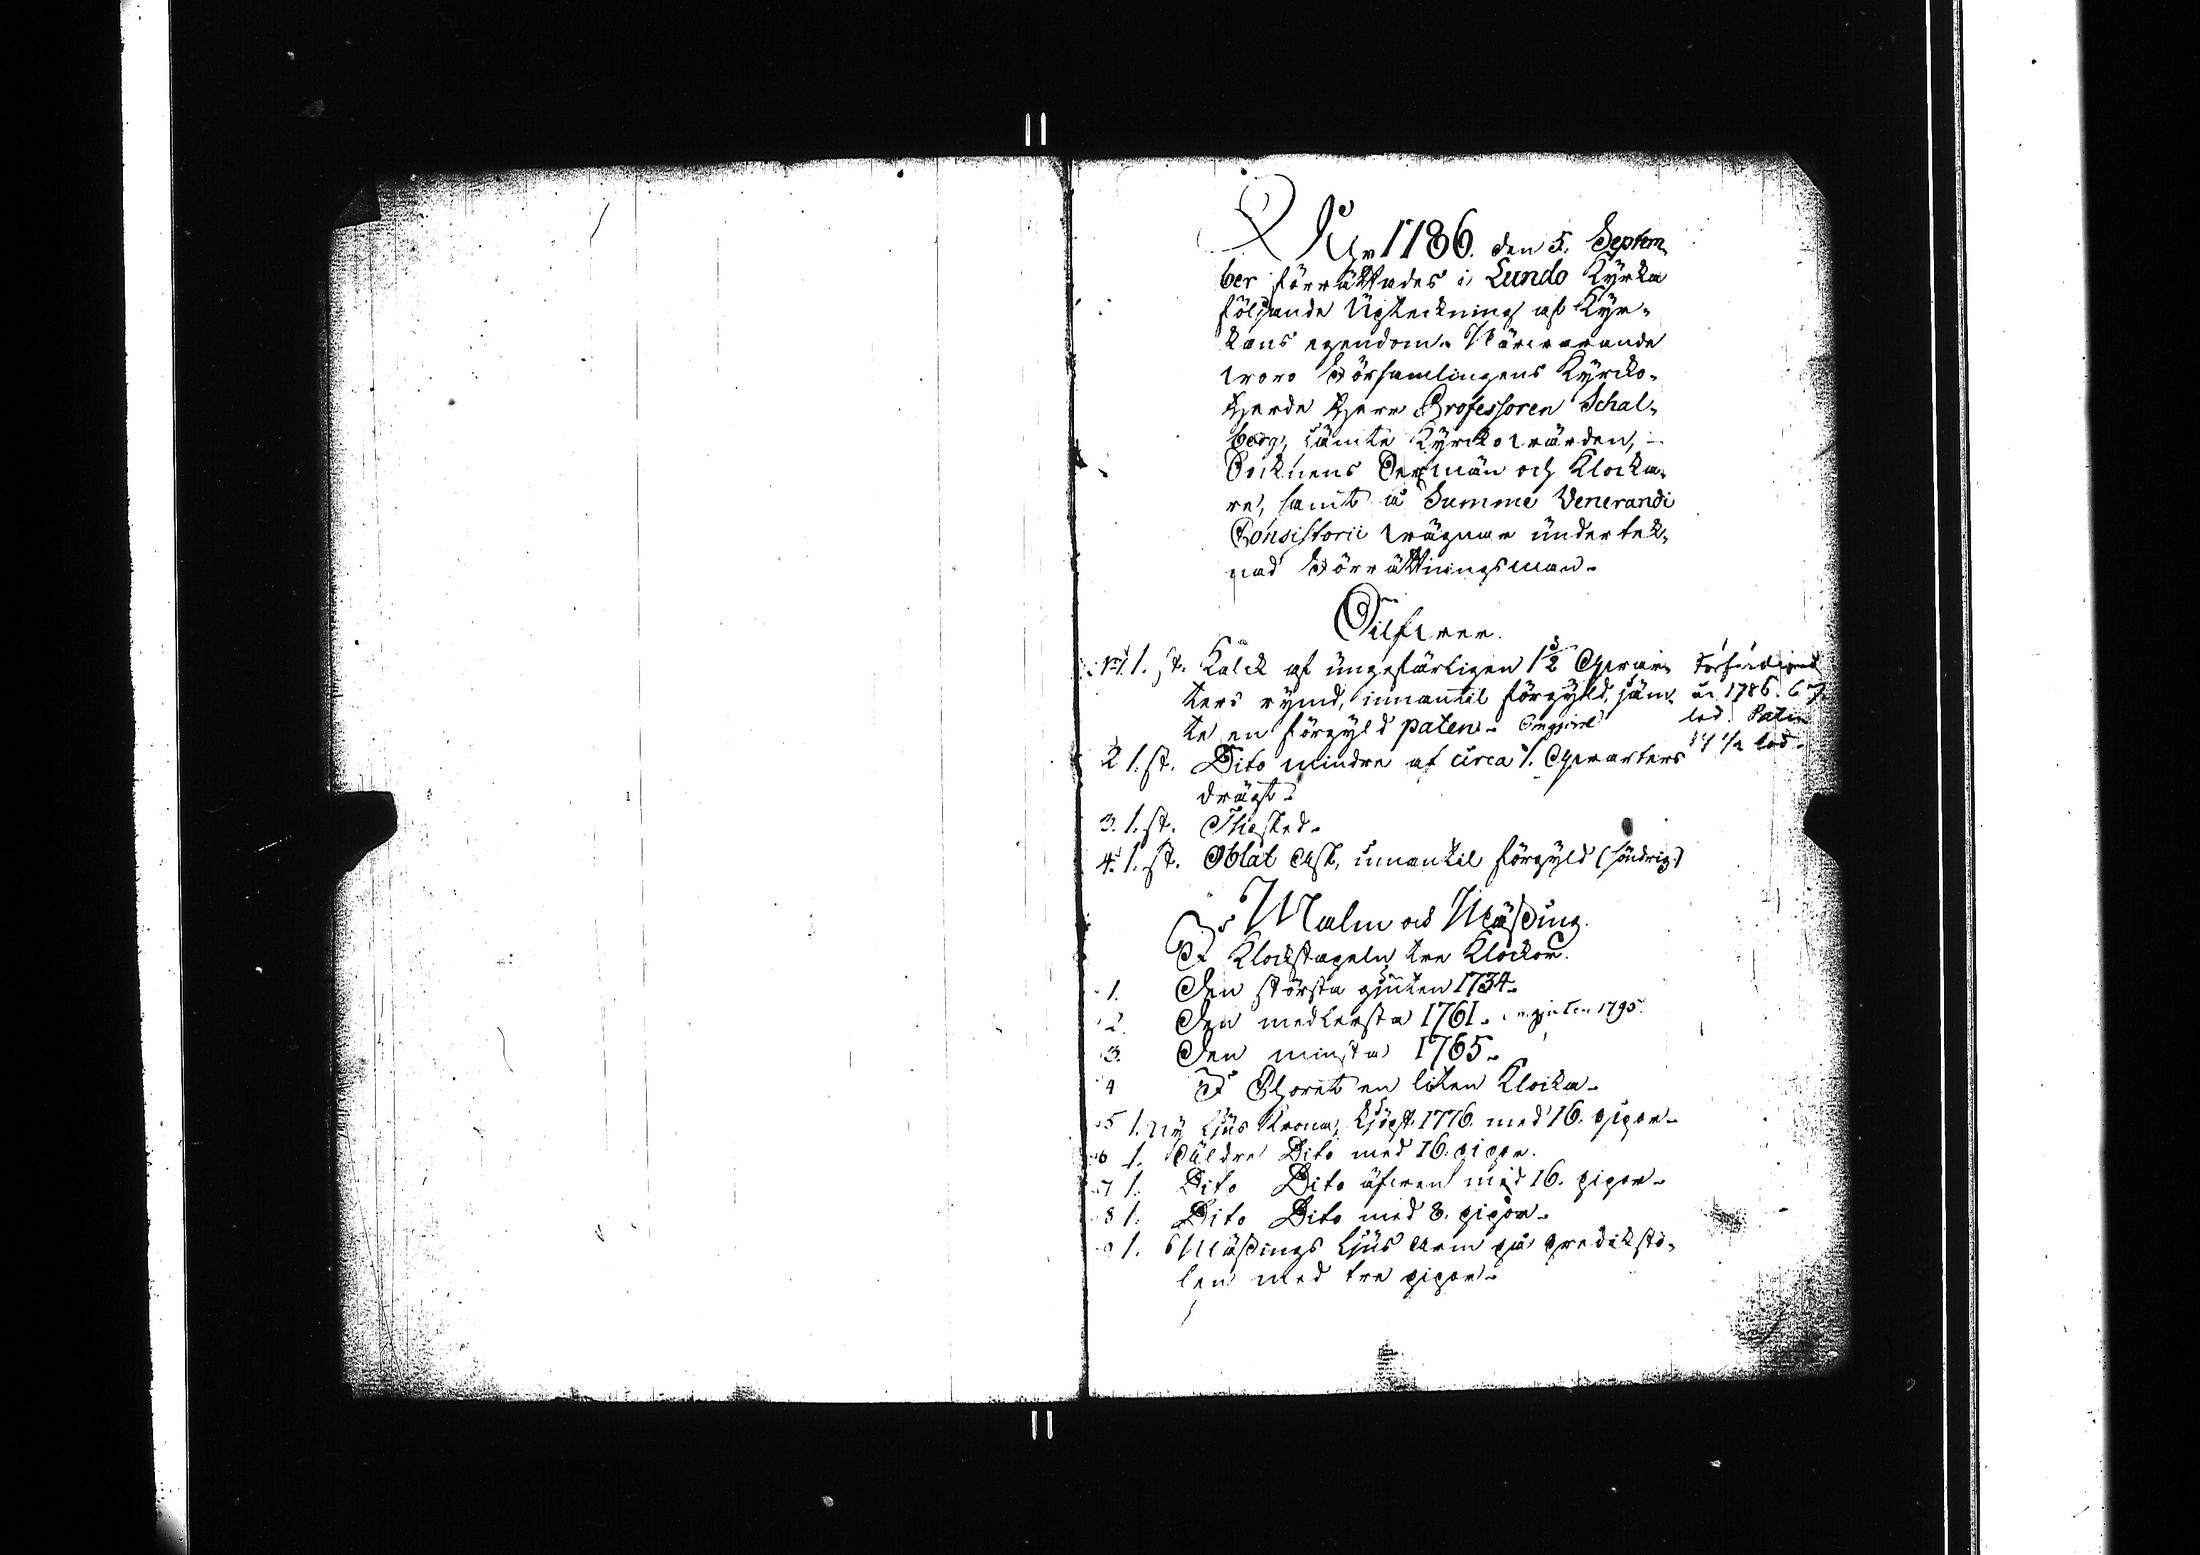 År 1786. den 5. Septem-
ber förrättades i Lundo Kyrka
följande Upteckning af Kyr-
kans egendom. Närvarande
voro Församlingens Kyrko-
herde Herr Professoren Schal-
berg, jämte Kyrckovärden,
Socknens Sexmän och Klocka-
re, samt å Summe Venerandi
Consistorii vägnar undertek-
nad Förrättningsman.
Silfver.
N:1 1. st. Kalck af ungefärligen 1 1/2 Qvar-
ters rymd, innantil förgyld, jäm-
te en förgyld paten. Omgjord
Förfärdigad
år 1786. 67
lod. Paten
14 1/2 lod.
2 1. st. Dito mindre af circa 1. Qvarters
drägt.
3. 1. st. Skjed.
4. 1. st. Oblat Ask, innantil förgyld (söndrig)
I Malm och Mässing.
I Klockstapeln tre Klockor.
1. Den största guten 1734.
2. Den medlersta 1761. omgjuten 1795.
3. Den minsta 1765.
4 I Choret en liten Klocka.
5 1. Ny Ljus Krona, Kjöpt 1776. med 16. pipor.
6 1. äldre Dito med 16. pipor.
7 1. Dito Dito äfven med 16. pipor.
8 1. Dito Dito med 8. pipor.
9 1. Mässings Ljus Arm på prediksto-
len med tre pipor.